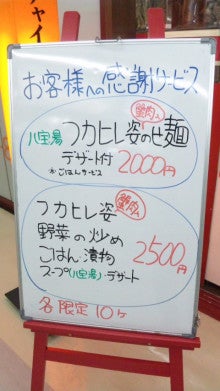 チャイ
お客様への感謝サービス
蟹肉入
八宝湯 フカヒレ姿のせ麺
デザート付 2000円
※ごはんサービス
蟹肉入
フカヒレ姿
野菜の炒め
ごはん・漬物 2500円
スープ(八宝湯)・デザート
各限定10ヶ